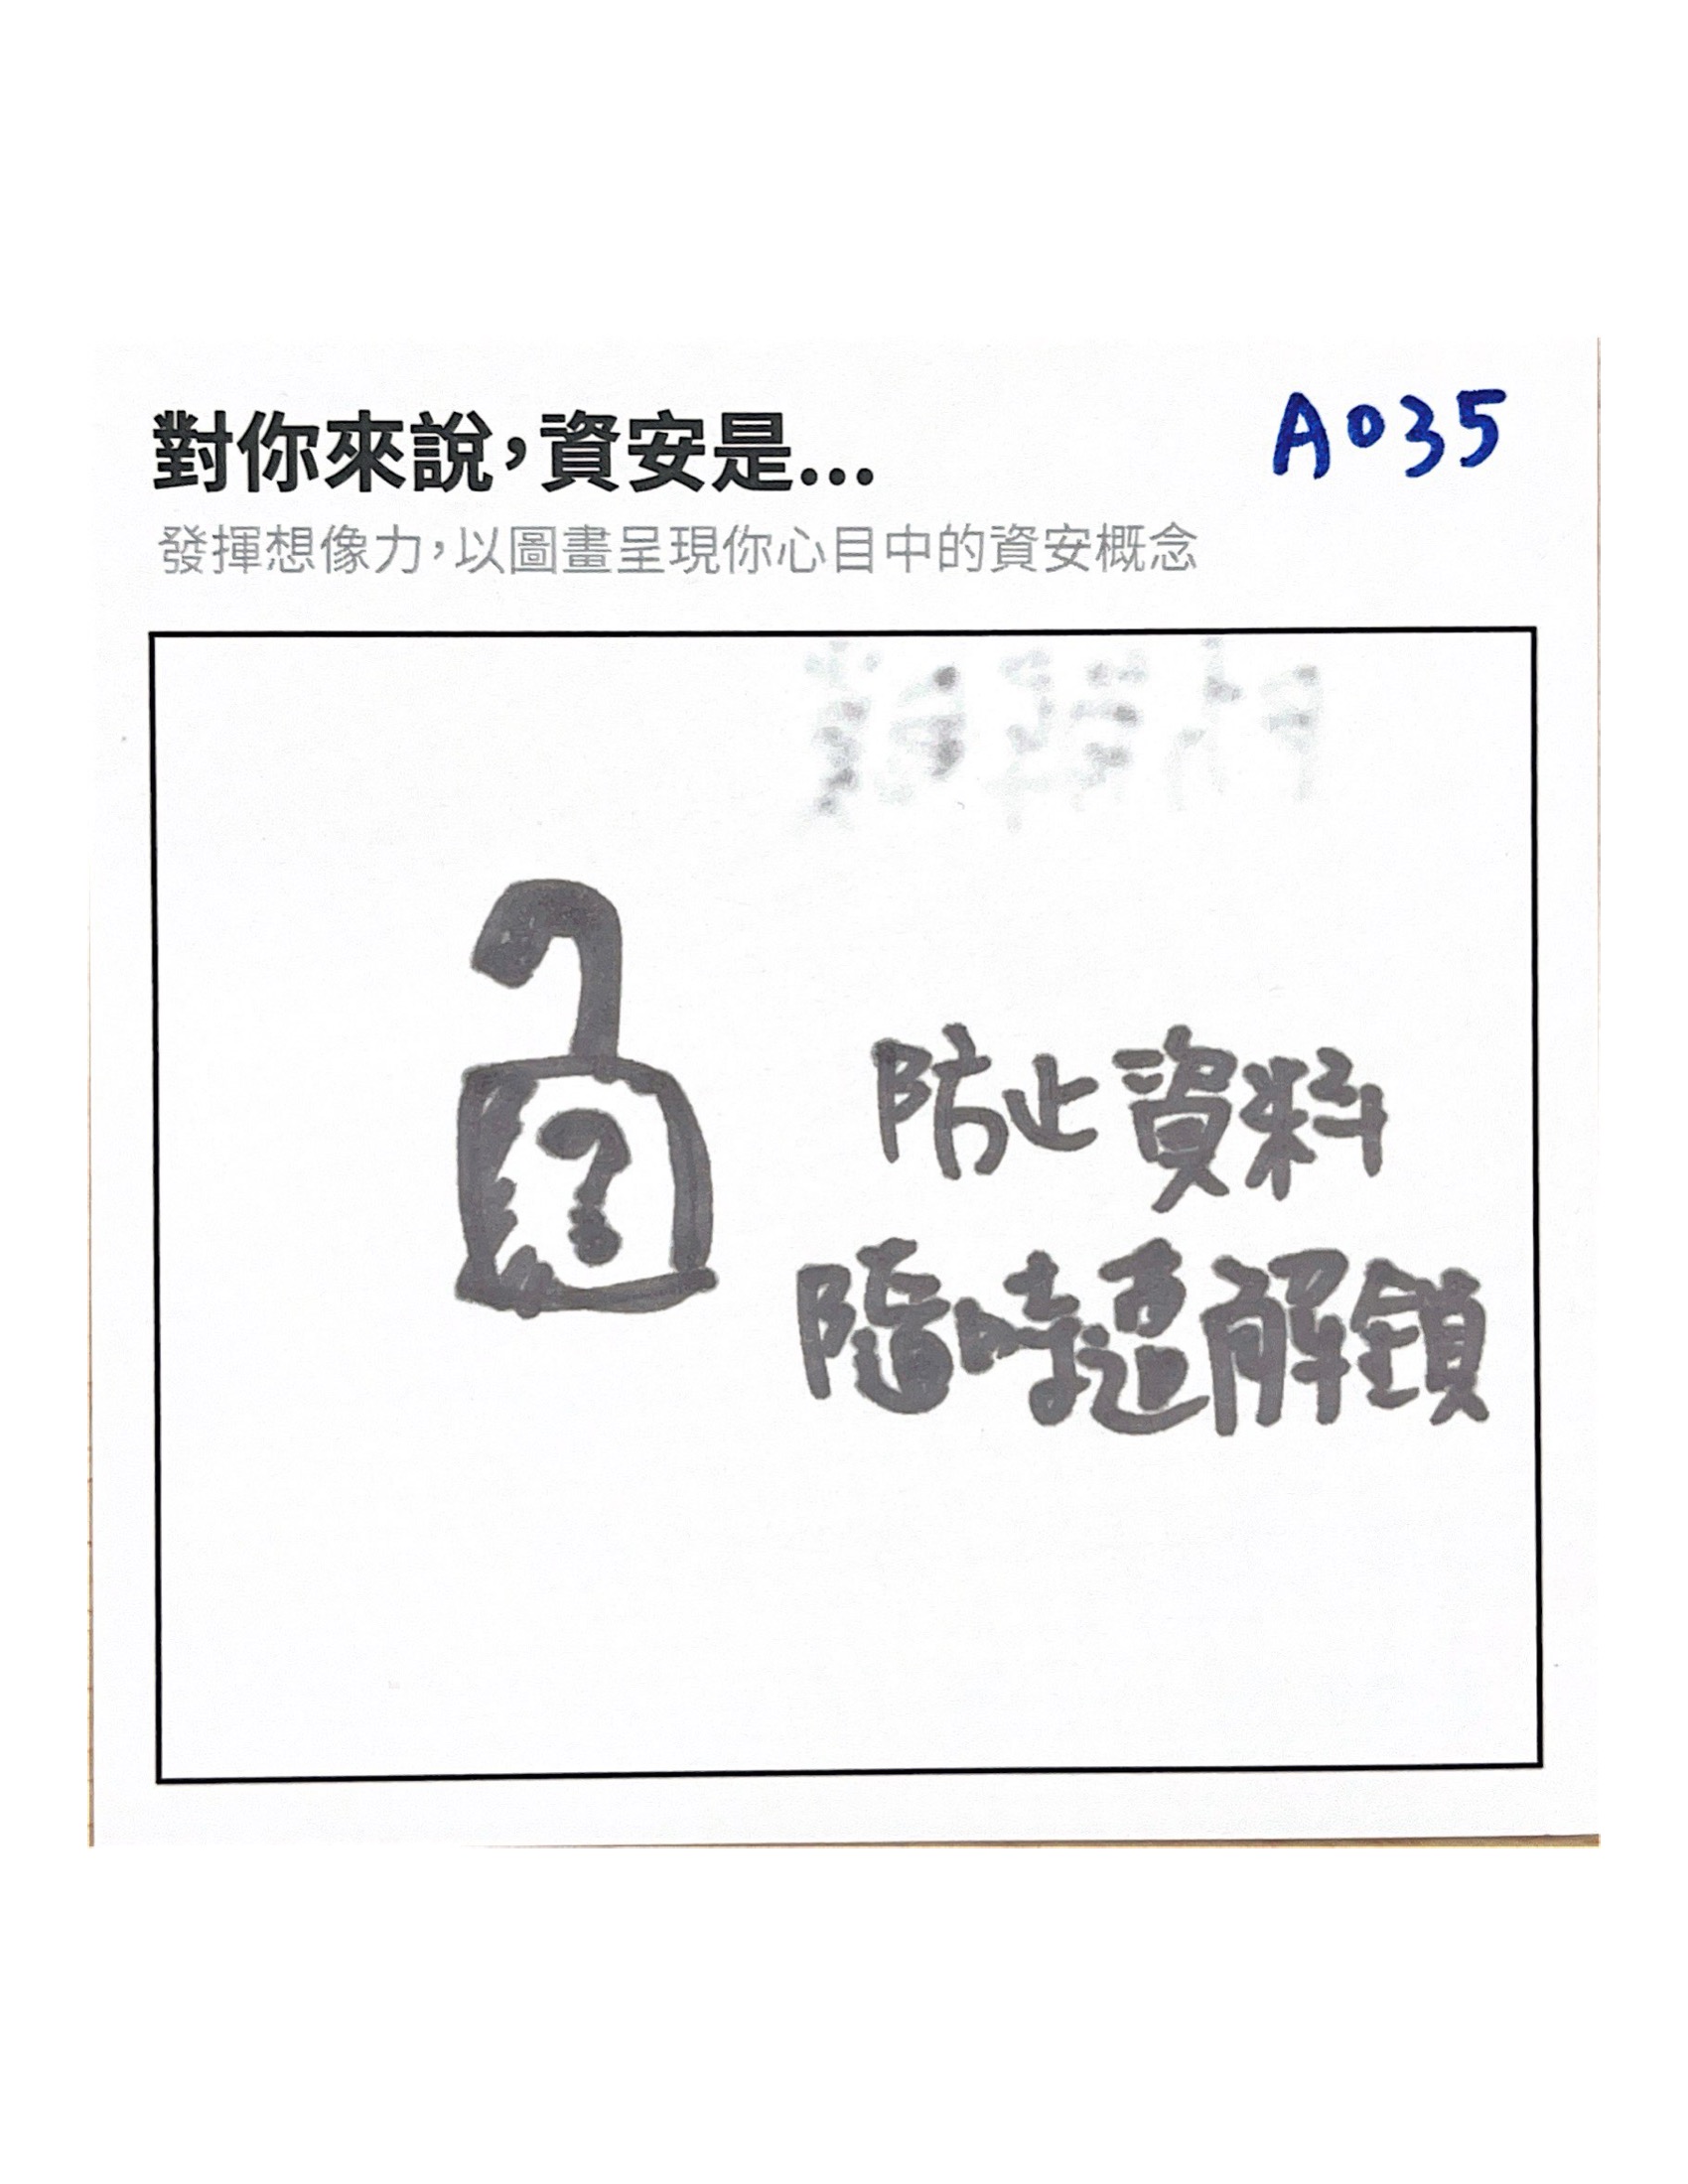 對你來說，資安是...
A035
發揮想像力，以圖畫呈現你心目中的資安概念
?
防止資料
隨時遭解鎖